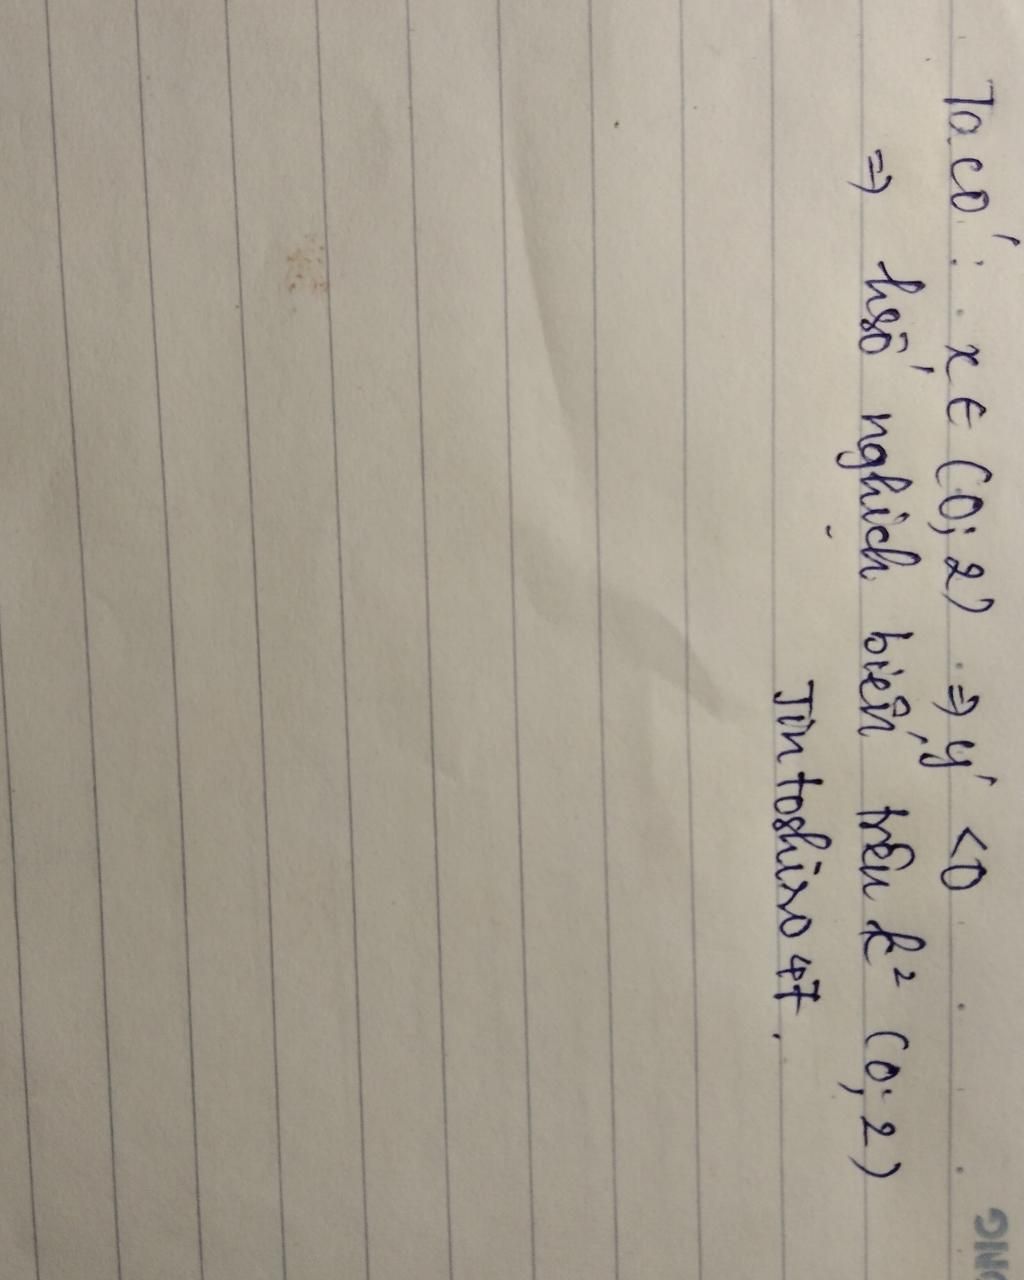 Ta có: x ∈ (0; 2) ⇒ y' < 0
⇒ hsố nghịch biến trên k² (0; 2)
Jintoshiro47.